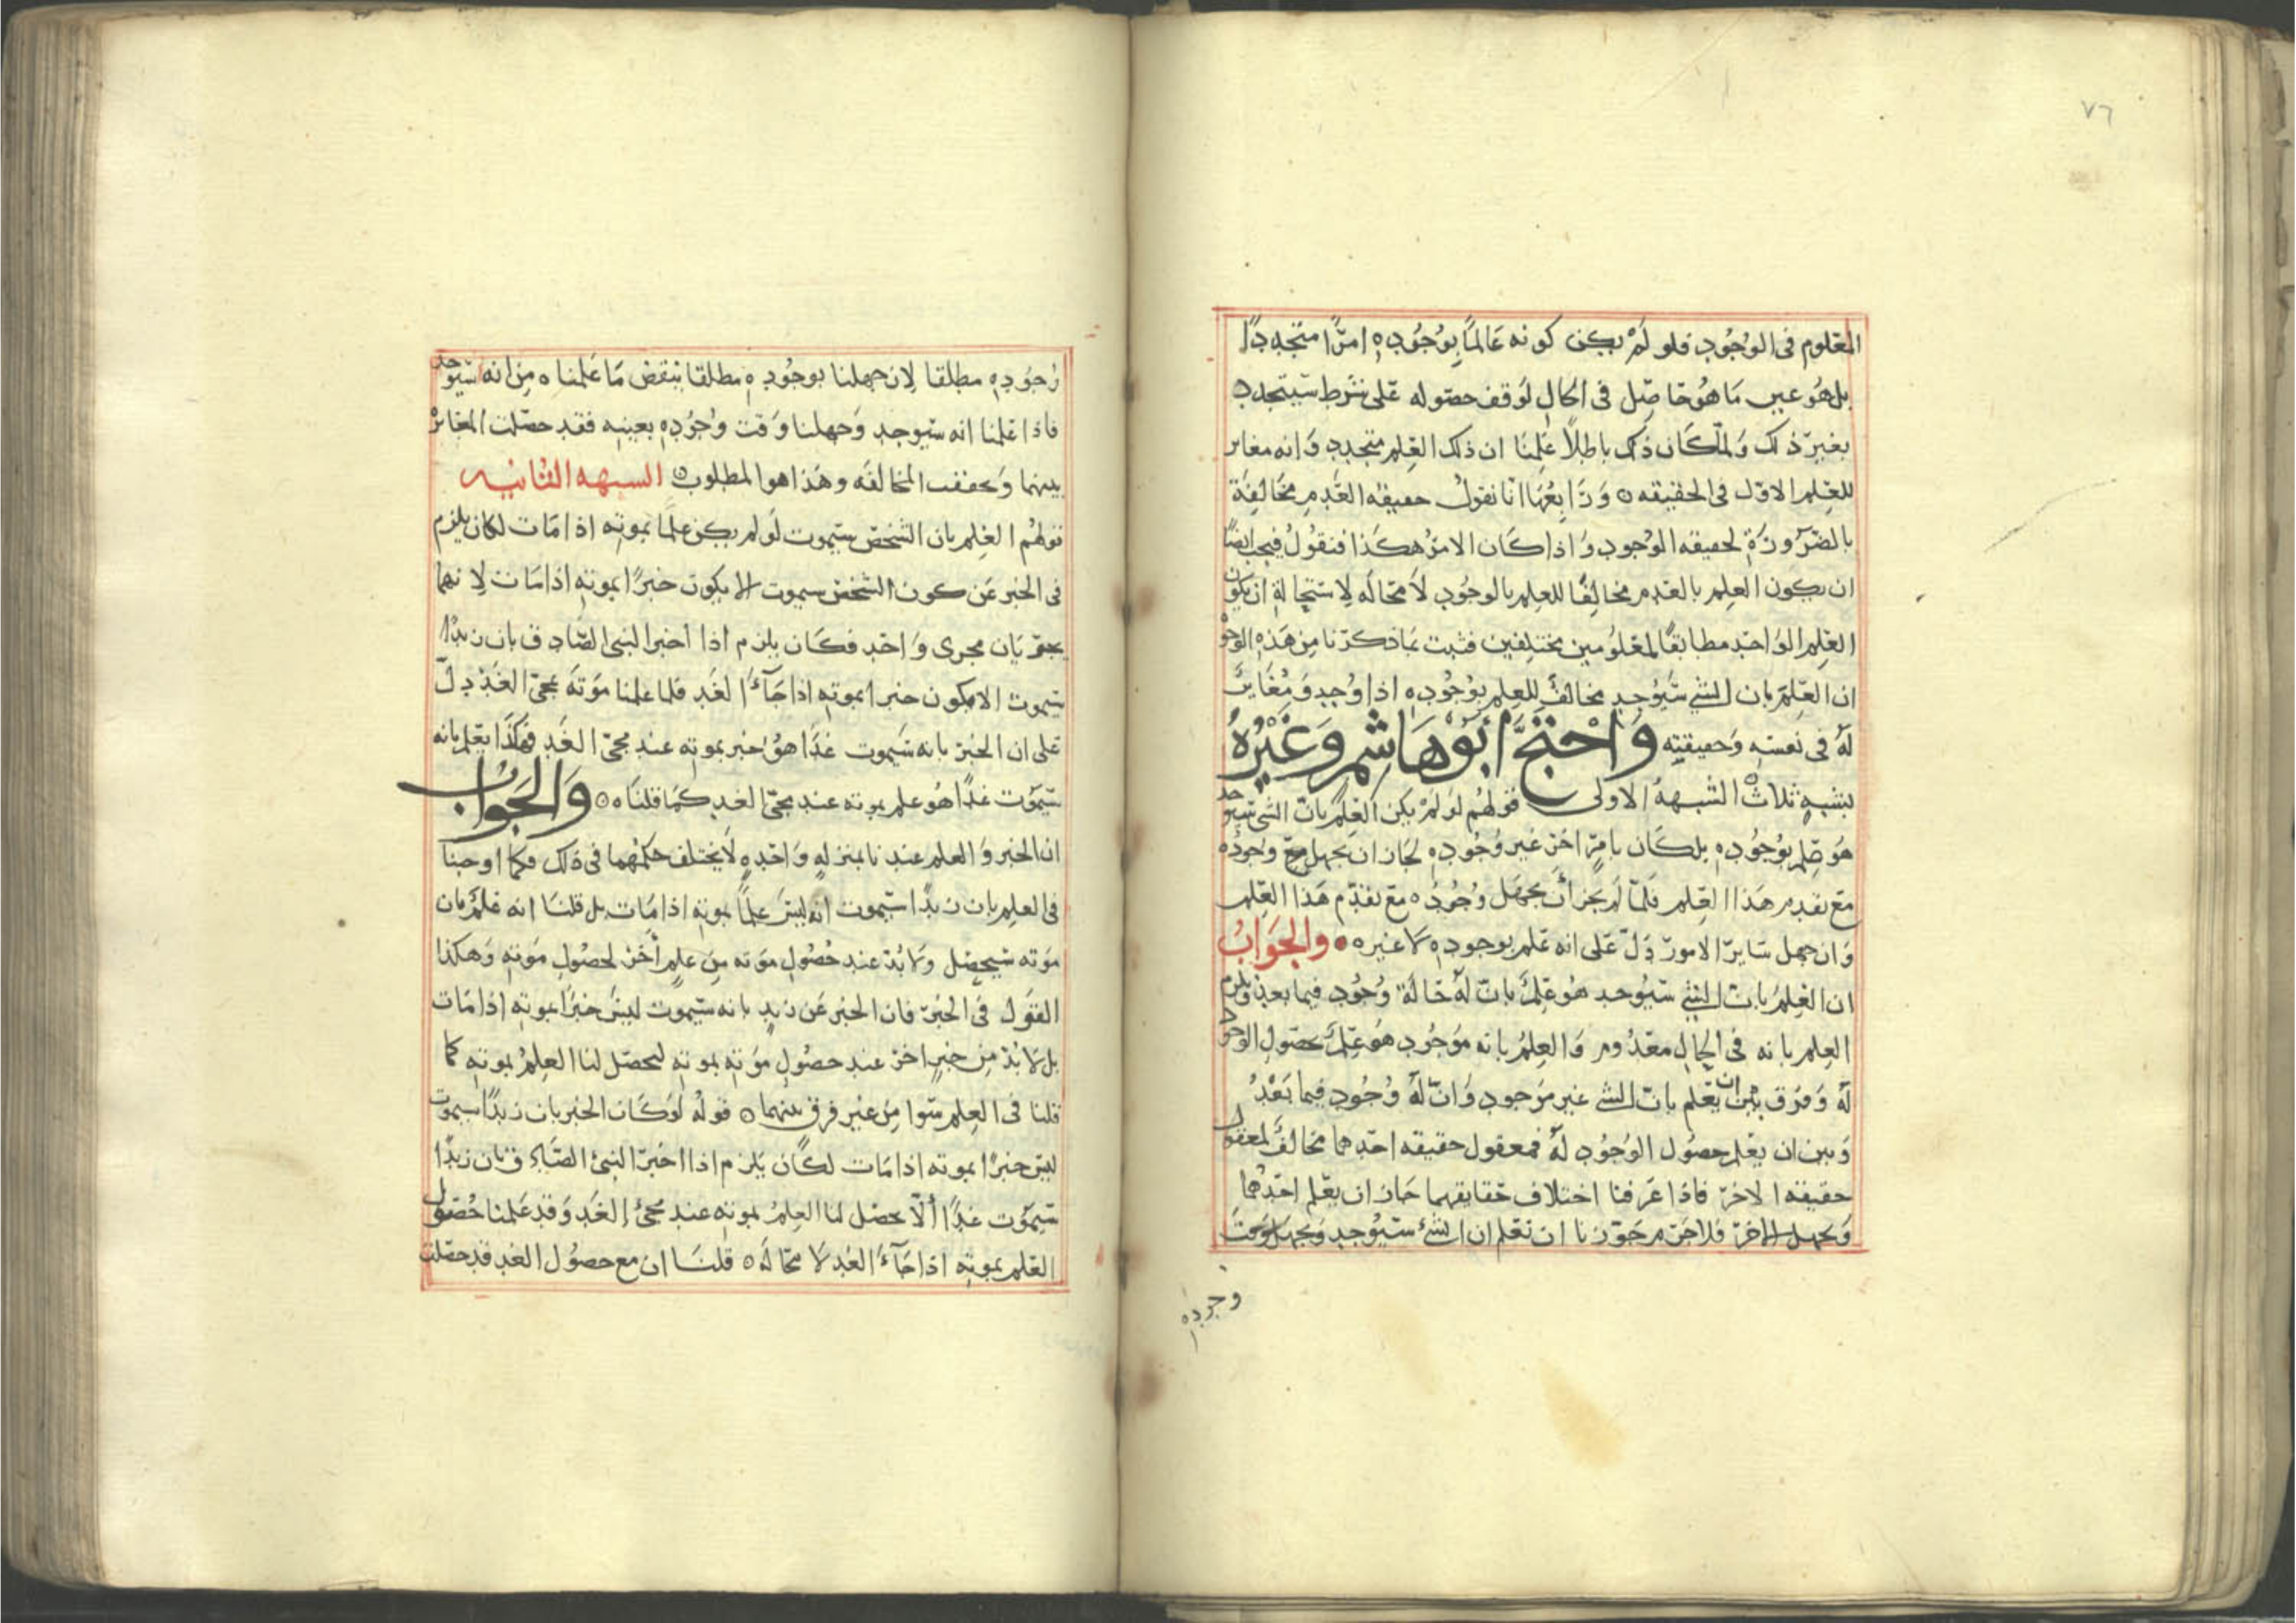 ٧٦
المعلوم فى الوجود فلو لم يكن كونه عالما بوجوده امرا متجددا
بل هو عين ما هو حاصل فى الحال لوقف حصوله على شرط سيتجدد
بغير ذلك ولما كان ذلك باطلا علمنا ان ذلك العلم متجدد وانه مغاير
للعلم الاول فى الحقيقه ٥ ورابعها انا نقول حقيقه العدم مخالفة
بالضرورة لحقيقه الوجود واذا كان الامر هكذا فنقول فيجب ايضا
ان يكون العلم بالعدم مخالفا للعلم بالوجود لا محاله لاستحالة ان يكون
العلم الواحد مطابقا لمعلومين مختلفين فثبت بما ذكرنا من هذه الوجوه
ان العلم بان الشي سيوجد مخالف للعلم بوجوده اذا وجد ومغاير
له فى نفسه وحقيقته واحتج ابو هاشم وغيره
بشبه ثلاث الشبهة الاولى قولهم لو لم يكن العلم بان الشى سيوجد
هو علم بوجوده بل كان بامر اخر غير وجوده لجاز ان يجهل وجوده
مع تقدم هذا العلم فلما لم يجز ان يجهل وجوده مع تقدم هذا العلم
وان جهل ساير الامور دل على انه علم بوجوده لا غيره ٥ والجواب
ان العلم بان الشي سيوجد هو علم بان له حالة وجود فيما بعد ويلزم
العلم بانه فى الحال معدوم والعلم بانه موجود هو علم بحصول الوجود
له وفرق بين ان يعلم بان الشي غير موجود وان له وجود فيما بعد
وبين ان يعلم حصول الوجود له فمعقول حقيقه احدهما مخالف لمعقول
حقيقه الاخر فاذا عرفنا اختلاف حقايقهما جاز ان يعلم احدهما
ويجهل الاخر فلا جرم جوزنا ان نعلم ان الشئ سيوجد ويجهل وقت
وجوده
وجوده مطلقا لان جهلنا بوجوده مطلقا ينقض ما علمناه من انه سيوجد
فاذا علمنا انه سيوجد وجهلنا وقت وجوده بعينه فقد حصلت المغايرة
بينهما وتحققت المخالفه وهذا هو المطلوب ٥ الشبهه الثانيه
قولهم العلم بان الشخص سيموت لو لم يكن علما بموته اذا مات لكان يلزم
فى الخبر عن كون الشخص سيموت الا يكون خبرا بموته اذا مات لانهما
يجريان مجرى واحد فكان يلزم اذا اخبر النبى الصادق بان زيدا
سيموت الا يكون خبرا بموته اذا جآء الغد فلما علمنا موته بمجئ الغد دل
على ان الخبر بانه سيموت غدا هو خبر بموته عند مجئ الغد فهكذا يعلم بانه
سيموت غدا هو علم بموته عند مجئ الغد كما قلناه ٥ والجواب
ان الخبر والعلم عندنا بمنزله واحده لا يختلف حكمهما فى ذلك فكما اوجبنا
فى العلم بان زيدا سيموت انه ليس علما بموته اذا مات بل قلنا انه علم بان
موته سيحصل ولا بد عند حصول موته من علم اخر لحصول موته وهكذا
القول فى الخبر فان الخبر عن زيد بانه سيموت ليس خبرا بموته اذا مات
بل لا بد من خبر اخر عند حصول موته بموته ليحصل لنا العلم بموته كما
قلنا فى العلم سوا من غير فرق بينهما ٥ قوله لو كان الخبر بان زيدا سيموت
ليس خبرا بموته اذا مات لكان يلزم اذا اخبر النبئ الصادق بان زيدا
سيموت غدا ألا يحصل لنا العلم بموته عند مجئ الغد وقد علمنا حصول
العلم بموته اذا جآء الغد لا محاله ٥ قلنا ان مع حصول الغد قد حصلت